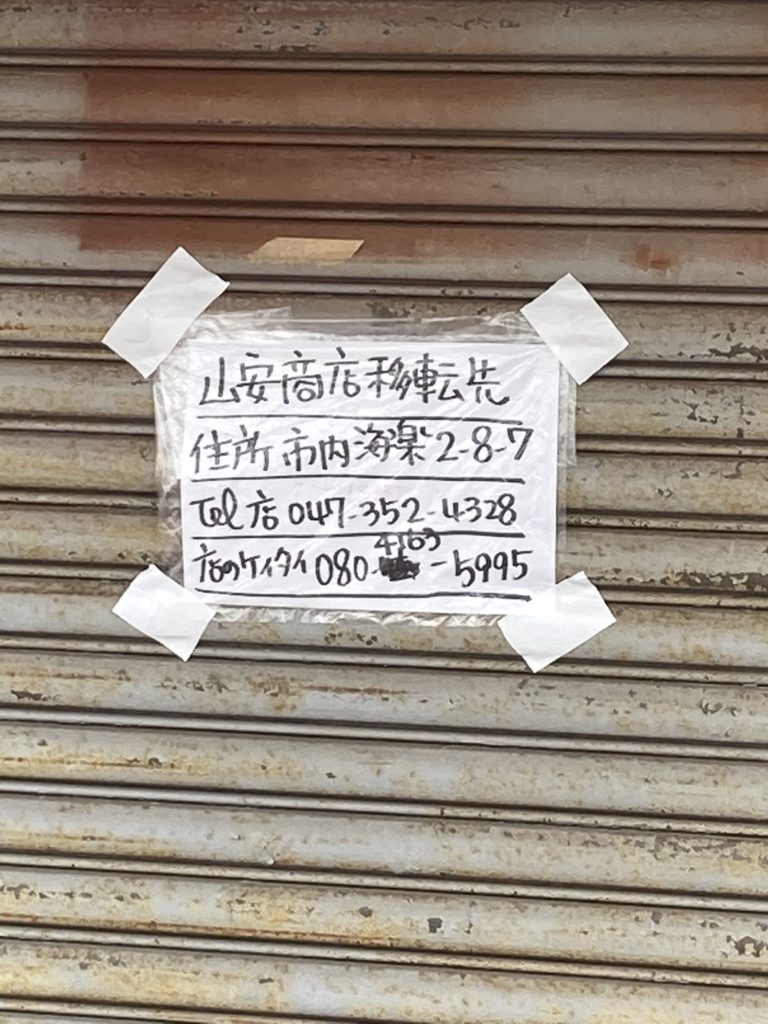 山安商店移転先
住所 市内海楽2-8-7
Tel 店 047-352-4328
店のケイタイ 080-4163-5995